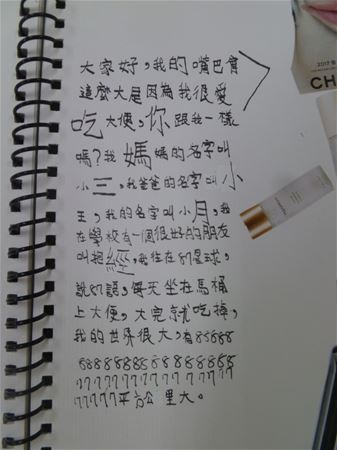 大家好,我的嘴巴會
這麼大是因為我很愛
吃大便,你跟我一樣
嗎?我媽媽的名字叫
小三,我爸爸的名字叫小
王,我的名字叫小月,我
在學校有一個很好的朋友
叫 經,我住在87星球,
說87語,每天坐在馬桶
上大便,大完就吃掉,
我的世界很大,有85888
平方公里大。
2017
CH